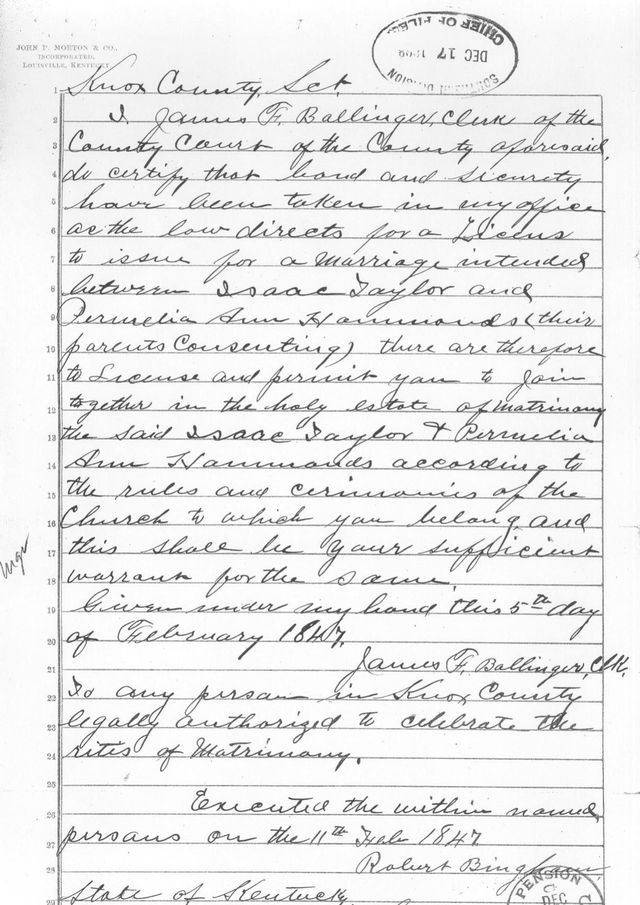 JOHN P. MORTON & CO.,
INCORPORATED,
LOUISVILLE, KENTUCKY
CHIEF OF FILES
DEC 17
SOUTHERN DIVISION
1 Knox County, Sct.
2 I James F. Ballinger, Clerk of the
3 County Court of the County aforesaid,
4 do certify that bond and sicurety
5 have been taken in my office
6 as the law directs for a Licens
7 to issue for a Marriage intended
8 between Isaac Taylor and
9 Permelia Ann Hammonds (their
10 parents Consenting) there are therefore
11 to License and permit you to join
12 together in the holy estate of matrimony
13 the said Isaac Taylor & Permelia
14 Ann Hammonds according to
15 the rules and cerimonies of the
16 Church to which you belong, and
17 this shall be your sufficient
18 warrant for the same.
19 Given under my hand this 5th day
20 of February 1847.
21 James F. Ballinger, Clk.
22 To any person in Knox County
23 legally authorized to celebrate the
24 rites of Matrimony.
25
26 Executed the within named
27 persons on the 11th Feb 1847
28 Robert Bingham,
29 State of Kentucky
PENSION
DEC